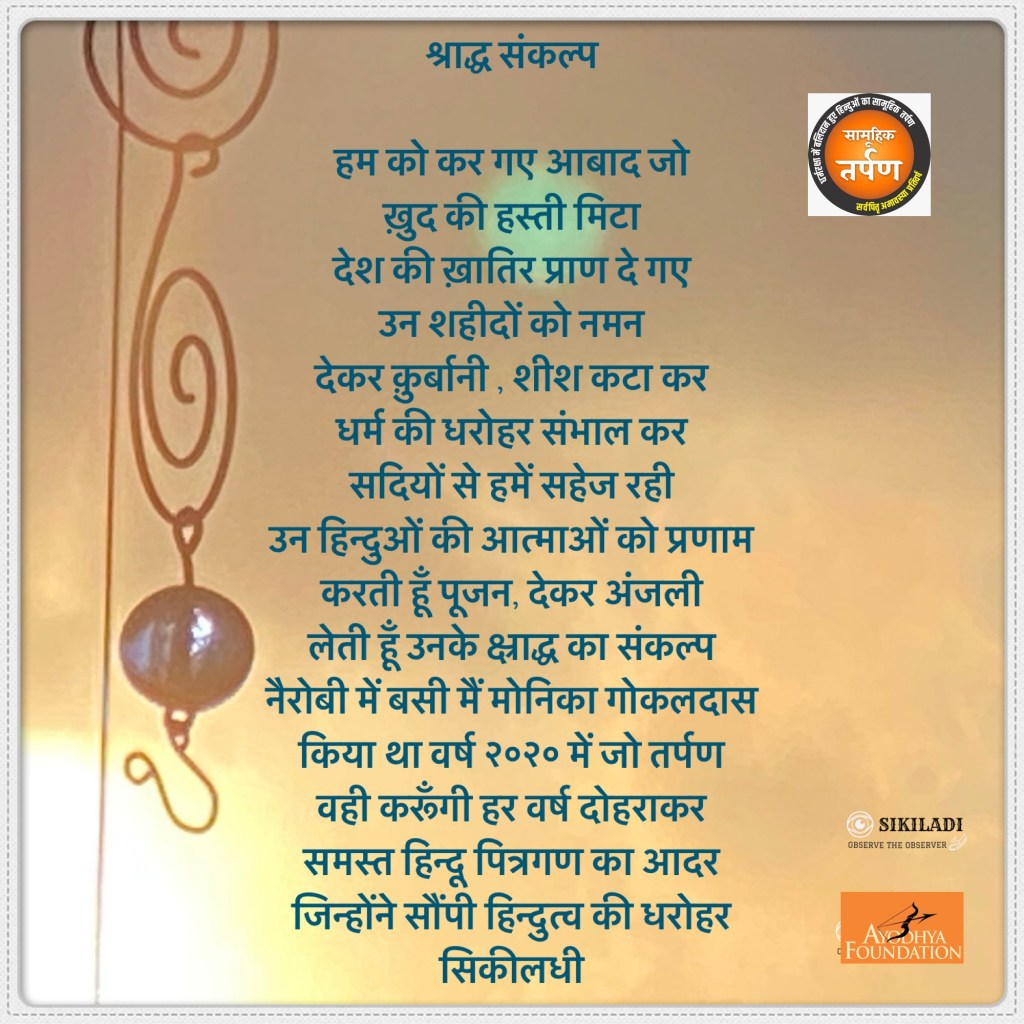 श्राद्ध संकल्प
हम को कर गए आबाद जो
ख़ुद की हस्ती मिटा
देश की ख़ातिर प्राण दे गए
उन शहीदों को नमन
देकर क़ुर्बानी , शीश कटा कर
धर्म की धरोहर संभाल कर
सदियों से हमें सहेज रही
उन हिन्दुओं की आत्माओं को प्रणाम
करती हूँ पूजन, देकर अंजली
लेती हूँ उनके क्ष्राद्ध का संकल्प
नैरोबी में बसी मैं मोनिका गोकलदास
किया था वर्ष २०२० में जो तर्पण
वही करूँगी हर वर्ष दोहराकर
समस्त हिन्दू पित्रगण का आदर
जिन्होंने सौंपी हिन्दुत्व की धरोहर
सिकीलधी
धर्मरक्षा में बलिदान हुए हिन्दुओं का सामूहिक तर्पण
सामूहिक
तर्पण
सर्वपितृ अमावस्या प्रतिवर्ष
SIKILADI
OBSERVE THE OBSERVER
AYODHYA
FOUNDATION